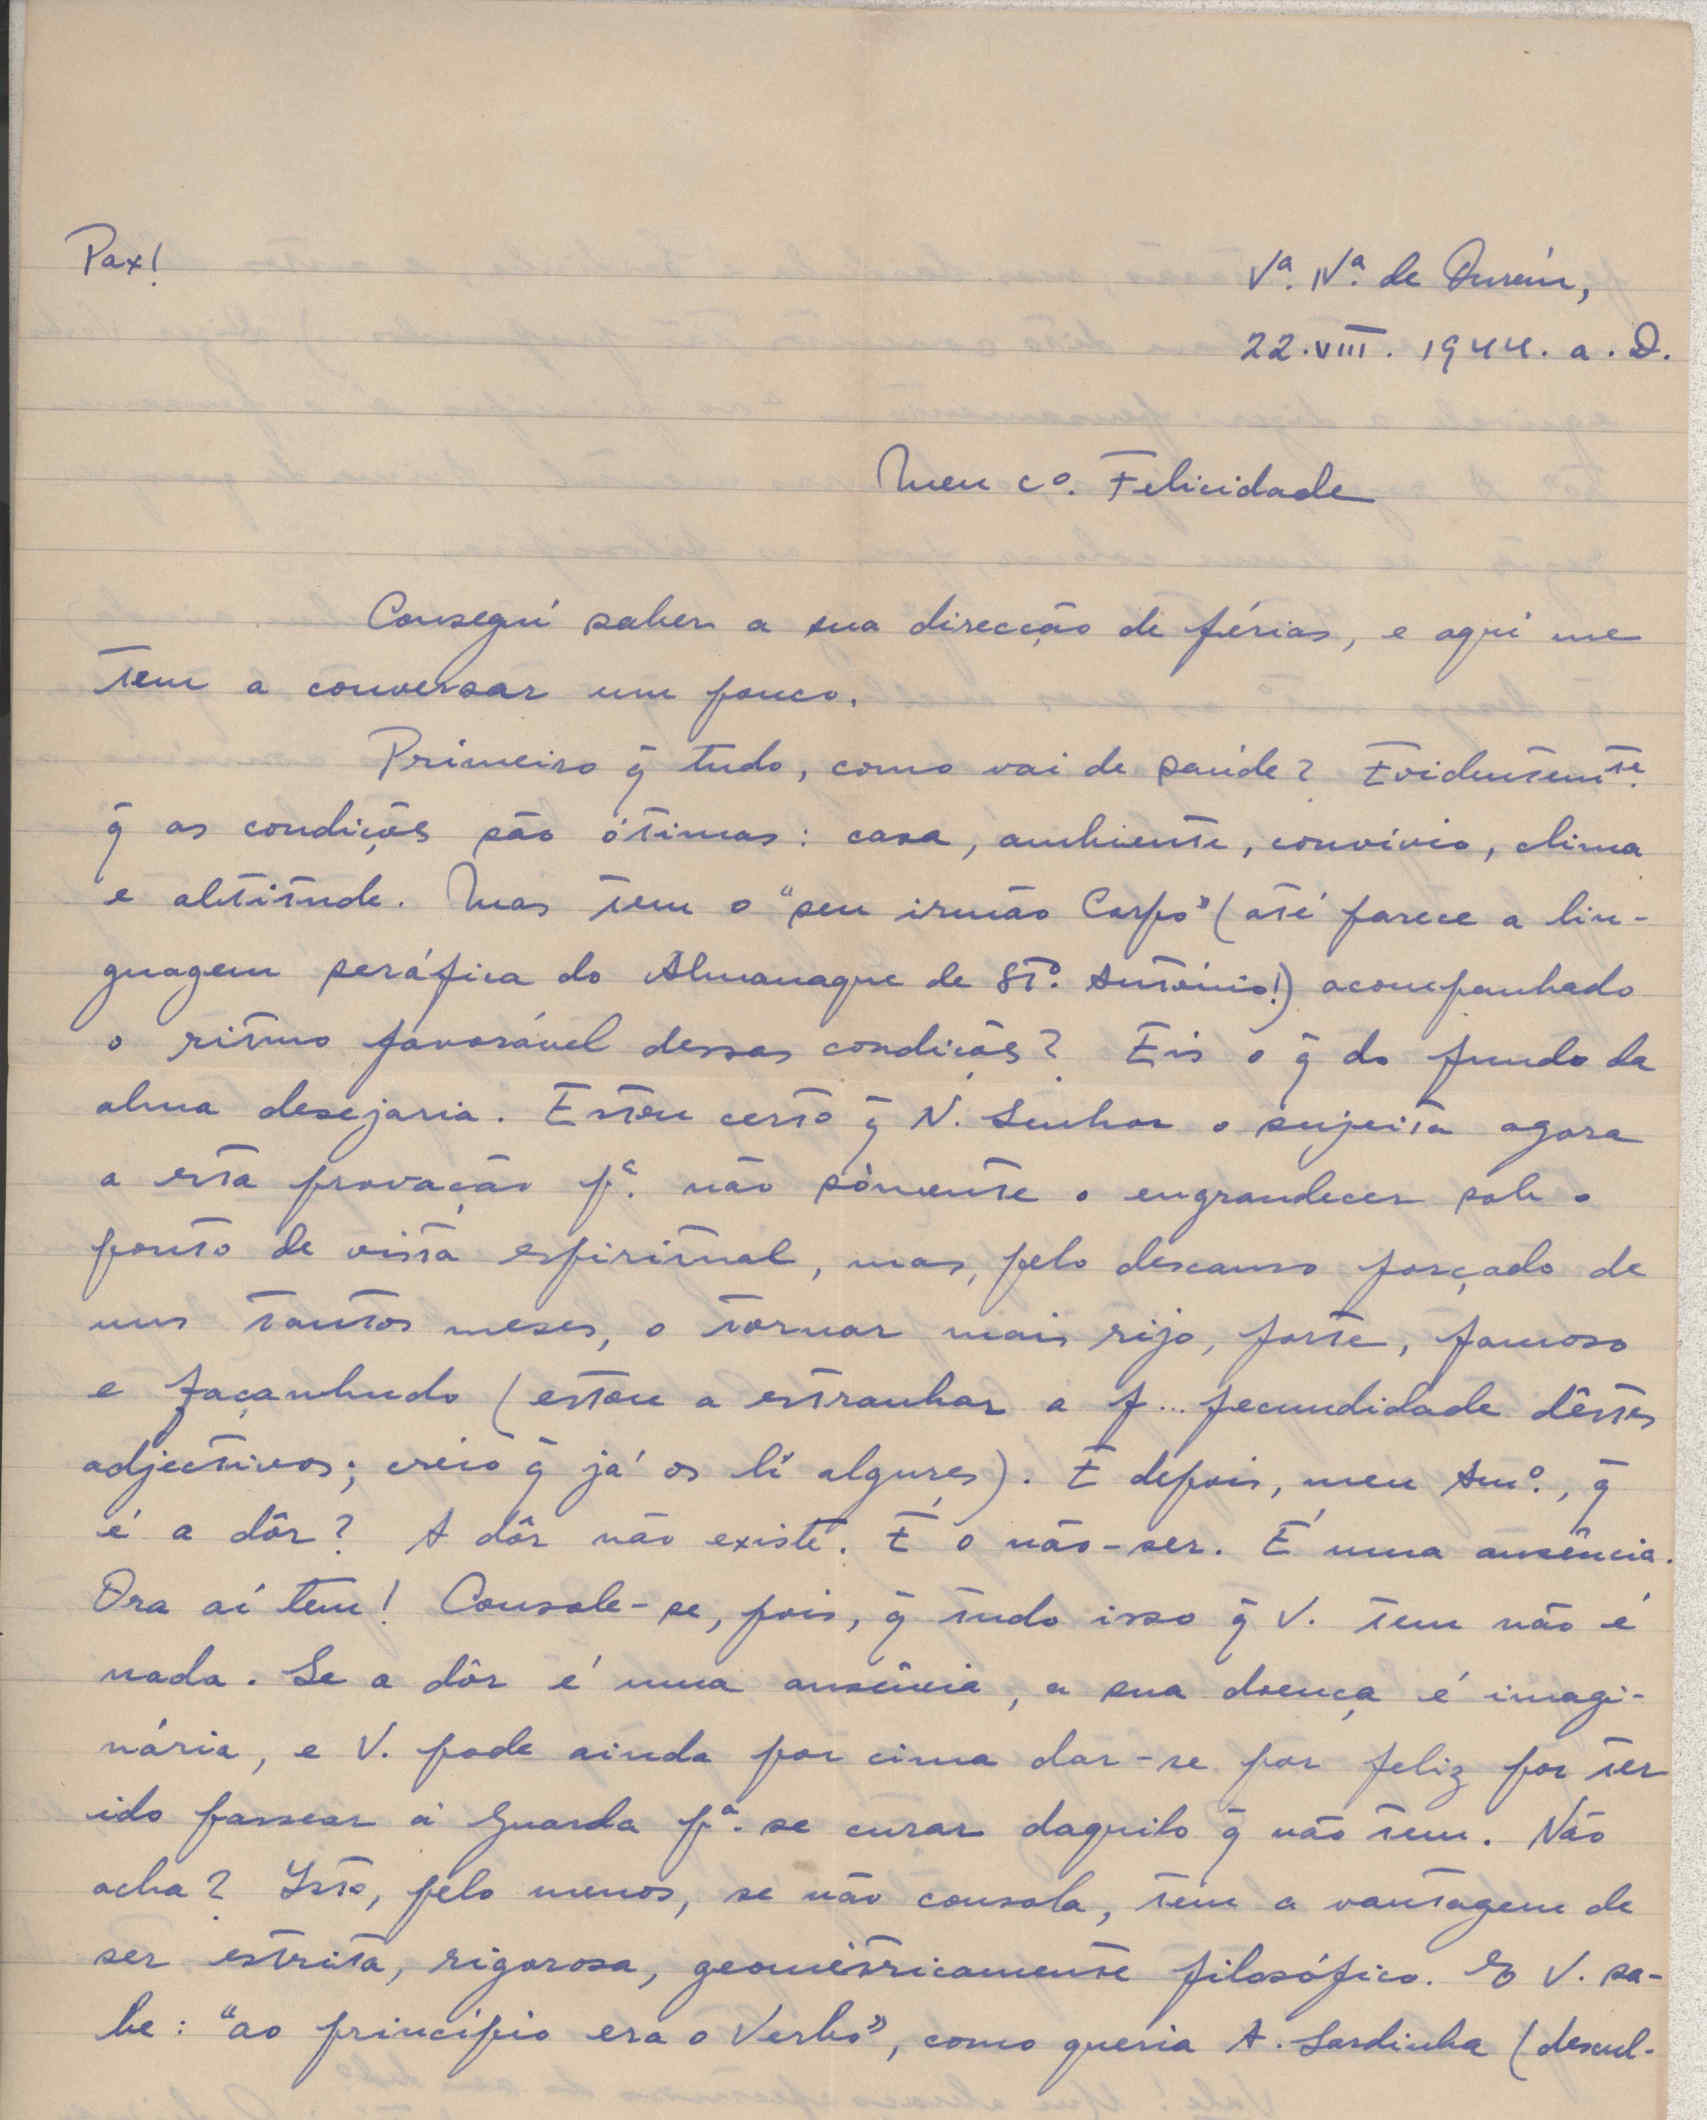 Pax!
Vª. Nª. de Ourém,
22.VIII. 1944. a. D.
Meu Cº. Felicidade
Conseguí saber a sua direcção de férias, e aquí me
tem a conversar um pouco.
Primeiro q̃ tudo, como vai de saúde? Evidentemte.
q̃ as condições são ótimas: casa, ambiente, convívio, clima
e altitude. Mas tem o "seu irmão Corpo" (até parece a lin-
guagem seráfica do Almanaque de Stº. António!) acompanhado
o ritmo favorável dessas condições? Eis o q̃ do fundo da
alma desejaria. Estou certo q̃ N. Senhor o sujeita agora
a esta provação pª. não sòmente o engrandecer sob o
ponto de vista espiritual, mas, pelo descanso forçado de
uns tantos meses, o tornar mais rijo, forte, famoso
e façanhudo (estou a estranhar a f... fecundidade dêstes
adjectivos; creio q̃ já os lí algures). E depois, meu Amº., q̃
é a dôr? A dôr não existe. É o não-ser. É uma ausência.
Ora aí tem! Console-se, pois, q̃ tudo isso q̃ V. tem não é
nada. Se a dôr é uma ausência, a sua doença é imagi-
nária, e V. pode ainda por cima dar-se por feliz por ter
ido passear à Guarda pª. se curar daquilo q̃ não tem. Não
acha? Isto, pelo menos, se não consola, tem a vantagem de
ser estrita, rigorosa, geomètricamente filosófico. E V. sa-
be: "ao princípio era o Verbo", como queria A. Sardinha (descul-